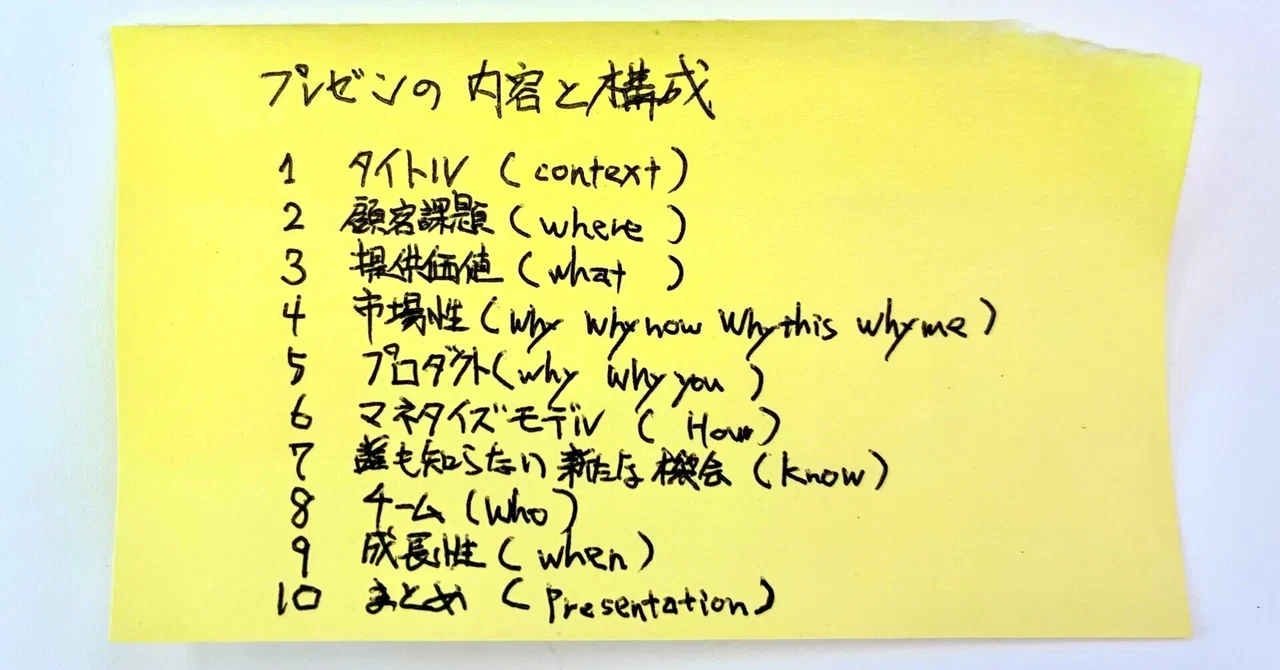 プレゼンの内容と構成
1 タイトル (context)
2 顧客課題 (where)
3 提供価値 (what)
4 市場性 (why why now Why this why me)
5 プロダクト (why why you)
6 マネタイズモデル (How)
7 誰も知らない新たな機会 (know)
8 チーム (who)
9 成長性 (when)
10 まとめ (presentation)